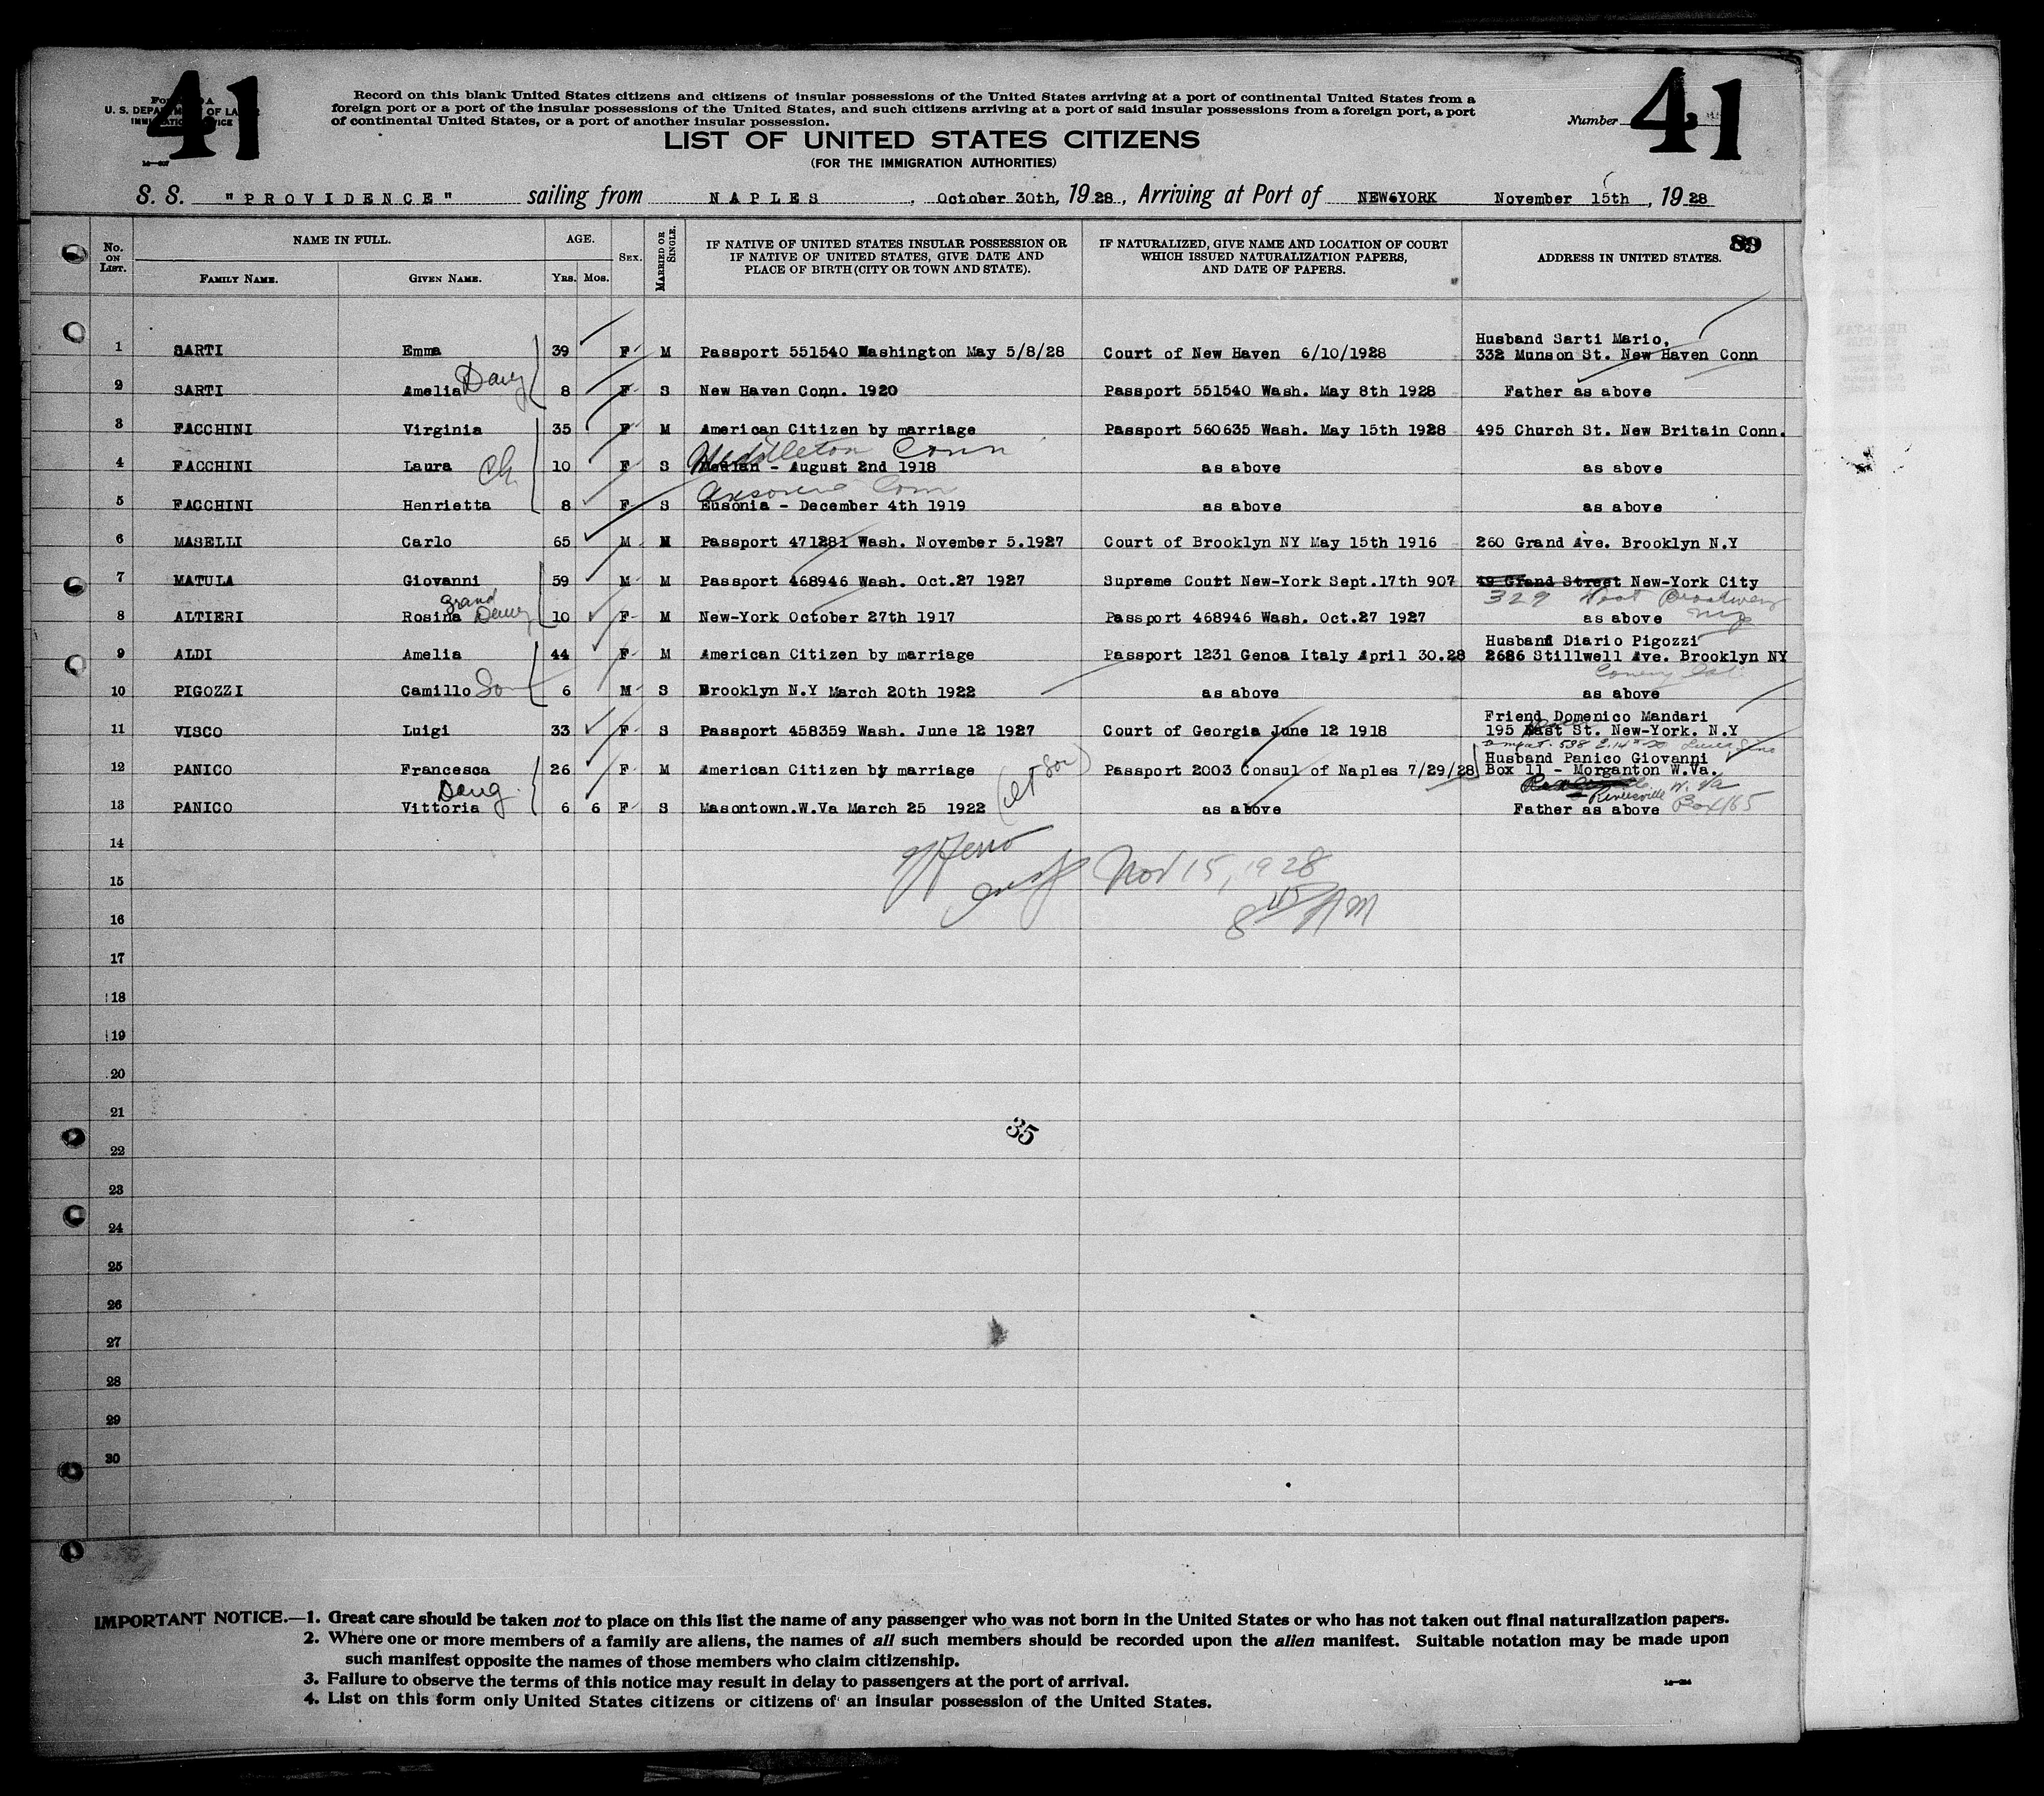 41
41
Form 630 A
U. S. DEPARTMENT OF LABOR
IMMIGRATION SERVICE
Record on this blank United States citizens and citizens of insular possessions of the United States arriving at a port of continental United States from a
foreign port or a port of the insular possessions of the United States, and such citizens arriving at a port of said insular possessions from a foreign port, a port
of continental United States, or a port of another insular possession.
Number
LIST OF UNITED STATES CITIZENS
(FOR THE IMMIGRATION AUTHORITIES)
S. S. "PROVIDENCE" sailing from NAPLES, October 30th, 1928, Arriving at Port of NEW-YORK November 15th, 1928
89
No. ON LIST. NAME IN FULL. FAMILY NAME. GIVEN NAME. AGE. YRS. MOS. SEX. MARRIED OR SINGLE. IF NATIVE OF UNITED STATES INSULAR POSSESSION OR IF NATIVE OF UNITED STATES, GIVE DATE AND PLACE OF BIRTH (CITY OR TOWN AND STATE). IF NATURALIZED, GIVE NAME AND LOCATION OF COURT WHICH ISSUED NATURALIZATION PAPERS, AND DATE OF PAPERS. ADDRESS IN UNITED STATES.
Husband Sarti Mario,
1 SARTI Emma 39 F M Passport 551540 Washington May 5/8/28 Court of New Haven 6/10/1928 332 Munson St. New Haven Conn
2 SARTI Amelia Daug 8 F S New Haven Conn. 1920 Passport 551540 Wash. May 8th 1928 Father as above
3 FACCHINI Virginia 35 F M American Citizen by marriage Passport 560635 Wash. May 15th 1928 495 Church St. New Britain Conn.
Middleton Conn
4 FACCHINI Laura Ch 10 F S - August 2nd 1918 as above as above
Ansonia Conn
5 FACCHINI Henrietta 8 F S Eusonia - December 4th 1919 as above as above
6 MASELLI Carlo 65 M M Passport 471281 Wash. November 5.1927 Court of Brooklyn NY May 15th 1916 260 Grand Ave. Brooklyn N.Y
7 MATULA Giovanni 59 M M Passport 468946 Wash. Oct.27 1927 Supreme Court New-York Sept.17th 907 49 Grand Street New-York City
Grand 329 West Broadway
8 ALTIERI Rosina Daug 10 F M New-York October 27th 1917 Passport 468946 Wash. Oct.27 1927 as above NY
Husband Diario Pigozzi
9 ALDI Amelia 44 F M American Citizen by marriage Passport 1231 Genoa Italy April 30.28 2686 Stillwell Ave. Brooklyn NY
Coney Isl.
10 PIGOZZI Camillo Son 6 M S Brooklyn N.Y March 20th 1922 as above as above
Friend Domenico Mandari
11 VISCO Luigi 33 F S Passport 458359 Wash. June 12 1927 Court of Georgia June 12 1918 195 East St. New-York. N.Y
538 E. 14th St
Husband Panico Giovanni
12 PANICO Francesca 26 F M American Citizen by marriage Passport 2003 Consul of Naples 7/29/28 Box 11 - Morganton W.Va.
Daug. W. Va
Rivesville Box 165
13 PANICO Vittoria 6 6 F S Masontown.W.Va March 25 1922 as above Father as above
14
15
Nov 15, 1928
8 45 AM
16
17
18
19
20
21
35
22
23
24
25
26
27
28
29
30
IMPORTANT NOTICE.—1. Great care should be taken not to place on this list the name of any passenger who was not born in the United States or who has not taken out final naturalization papers.
2. Where one or more members of a family are aliens, the names of all such members should be recorded upon the alien manifest. Suitable notation may be made upon
such manifest opposite the names of those members who claim citizenship.
3. Failure to observe the terms of this notice may result in delay to passengers at the port of arrival.
4. List on this form only United States citizens or citizens of an insular possession of the United States.